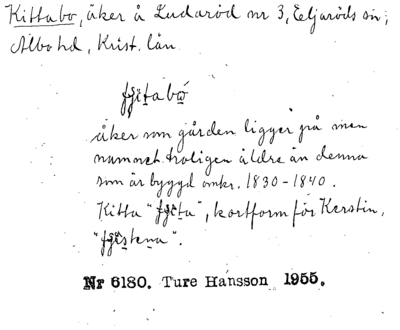 Kittabo, åker å Ludaröd nr 3, Eljaröds sn;
Albo hd, Krist. län.
åker som gården ligger på men
namnet troligen äldre än denna
som är byggd omkr. 1830-1840.
Kitta "", kortform för Kerstin,
Nr 6180. Ture Hansson 1955.